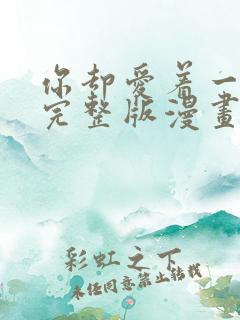 你却爱着一
完整版漫畫
彩虹之下
未经同意禁止转载